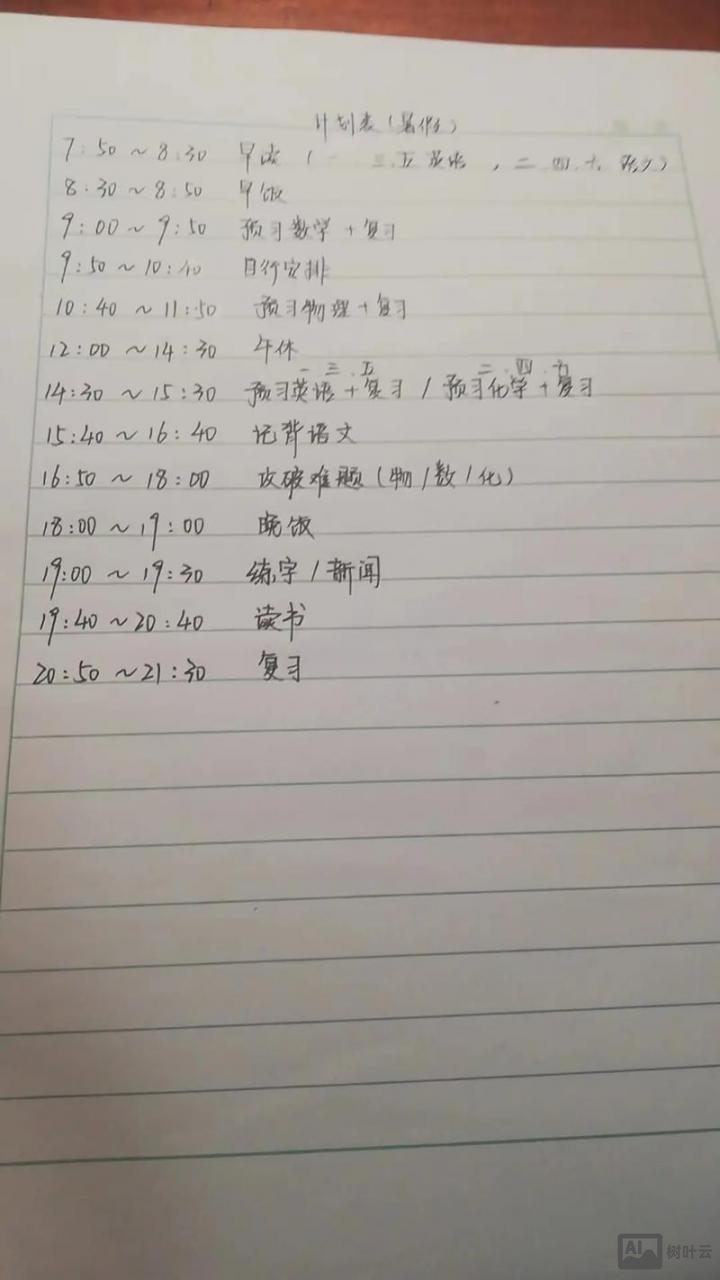 计划表(暑假)
7:50 ~ 8:30 早读 (一 三.五 英语 , 二 四.六 语文)
8:30 ~ 8:50 早饭
9:00 ~ 9:50 预习数学 + 复习
9:50 ~ 10:40 自行安排
10:40 ~ 11:50 预习物理 + 复习
12:00 ~ 14:30 午休
一 三.五 二.四.六
14:30 ~ 15:30 预习英语 + 复习 / 预习化学 + 复习
15:40 ~ 16:40 记背语文
16:50 ~ 18:00 攻破难题(物/数/化)
18:00 ~ 19:00 晚饭
19:00 ~ 19:30 练字 / 新闻
19:40 ~ 20:40 读书
20:50 ~ 21:30 复习
AI 树叶云